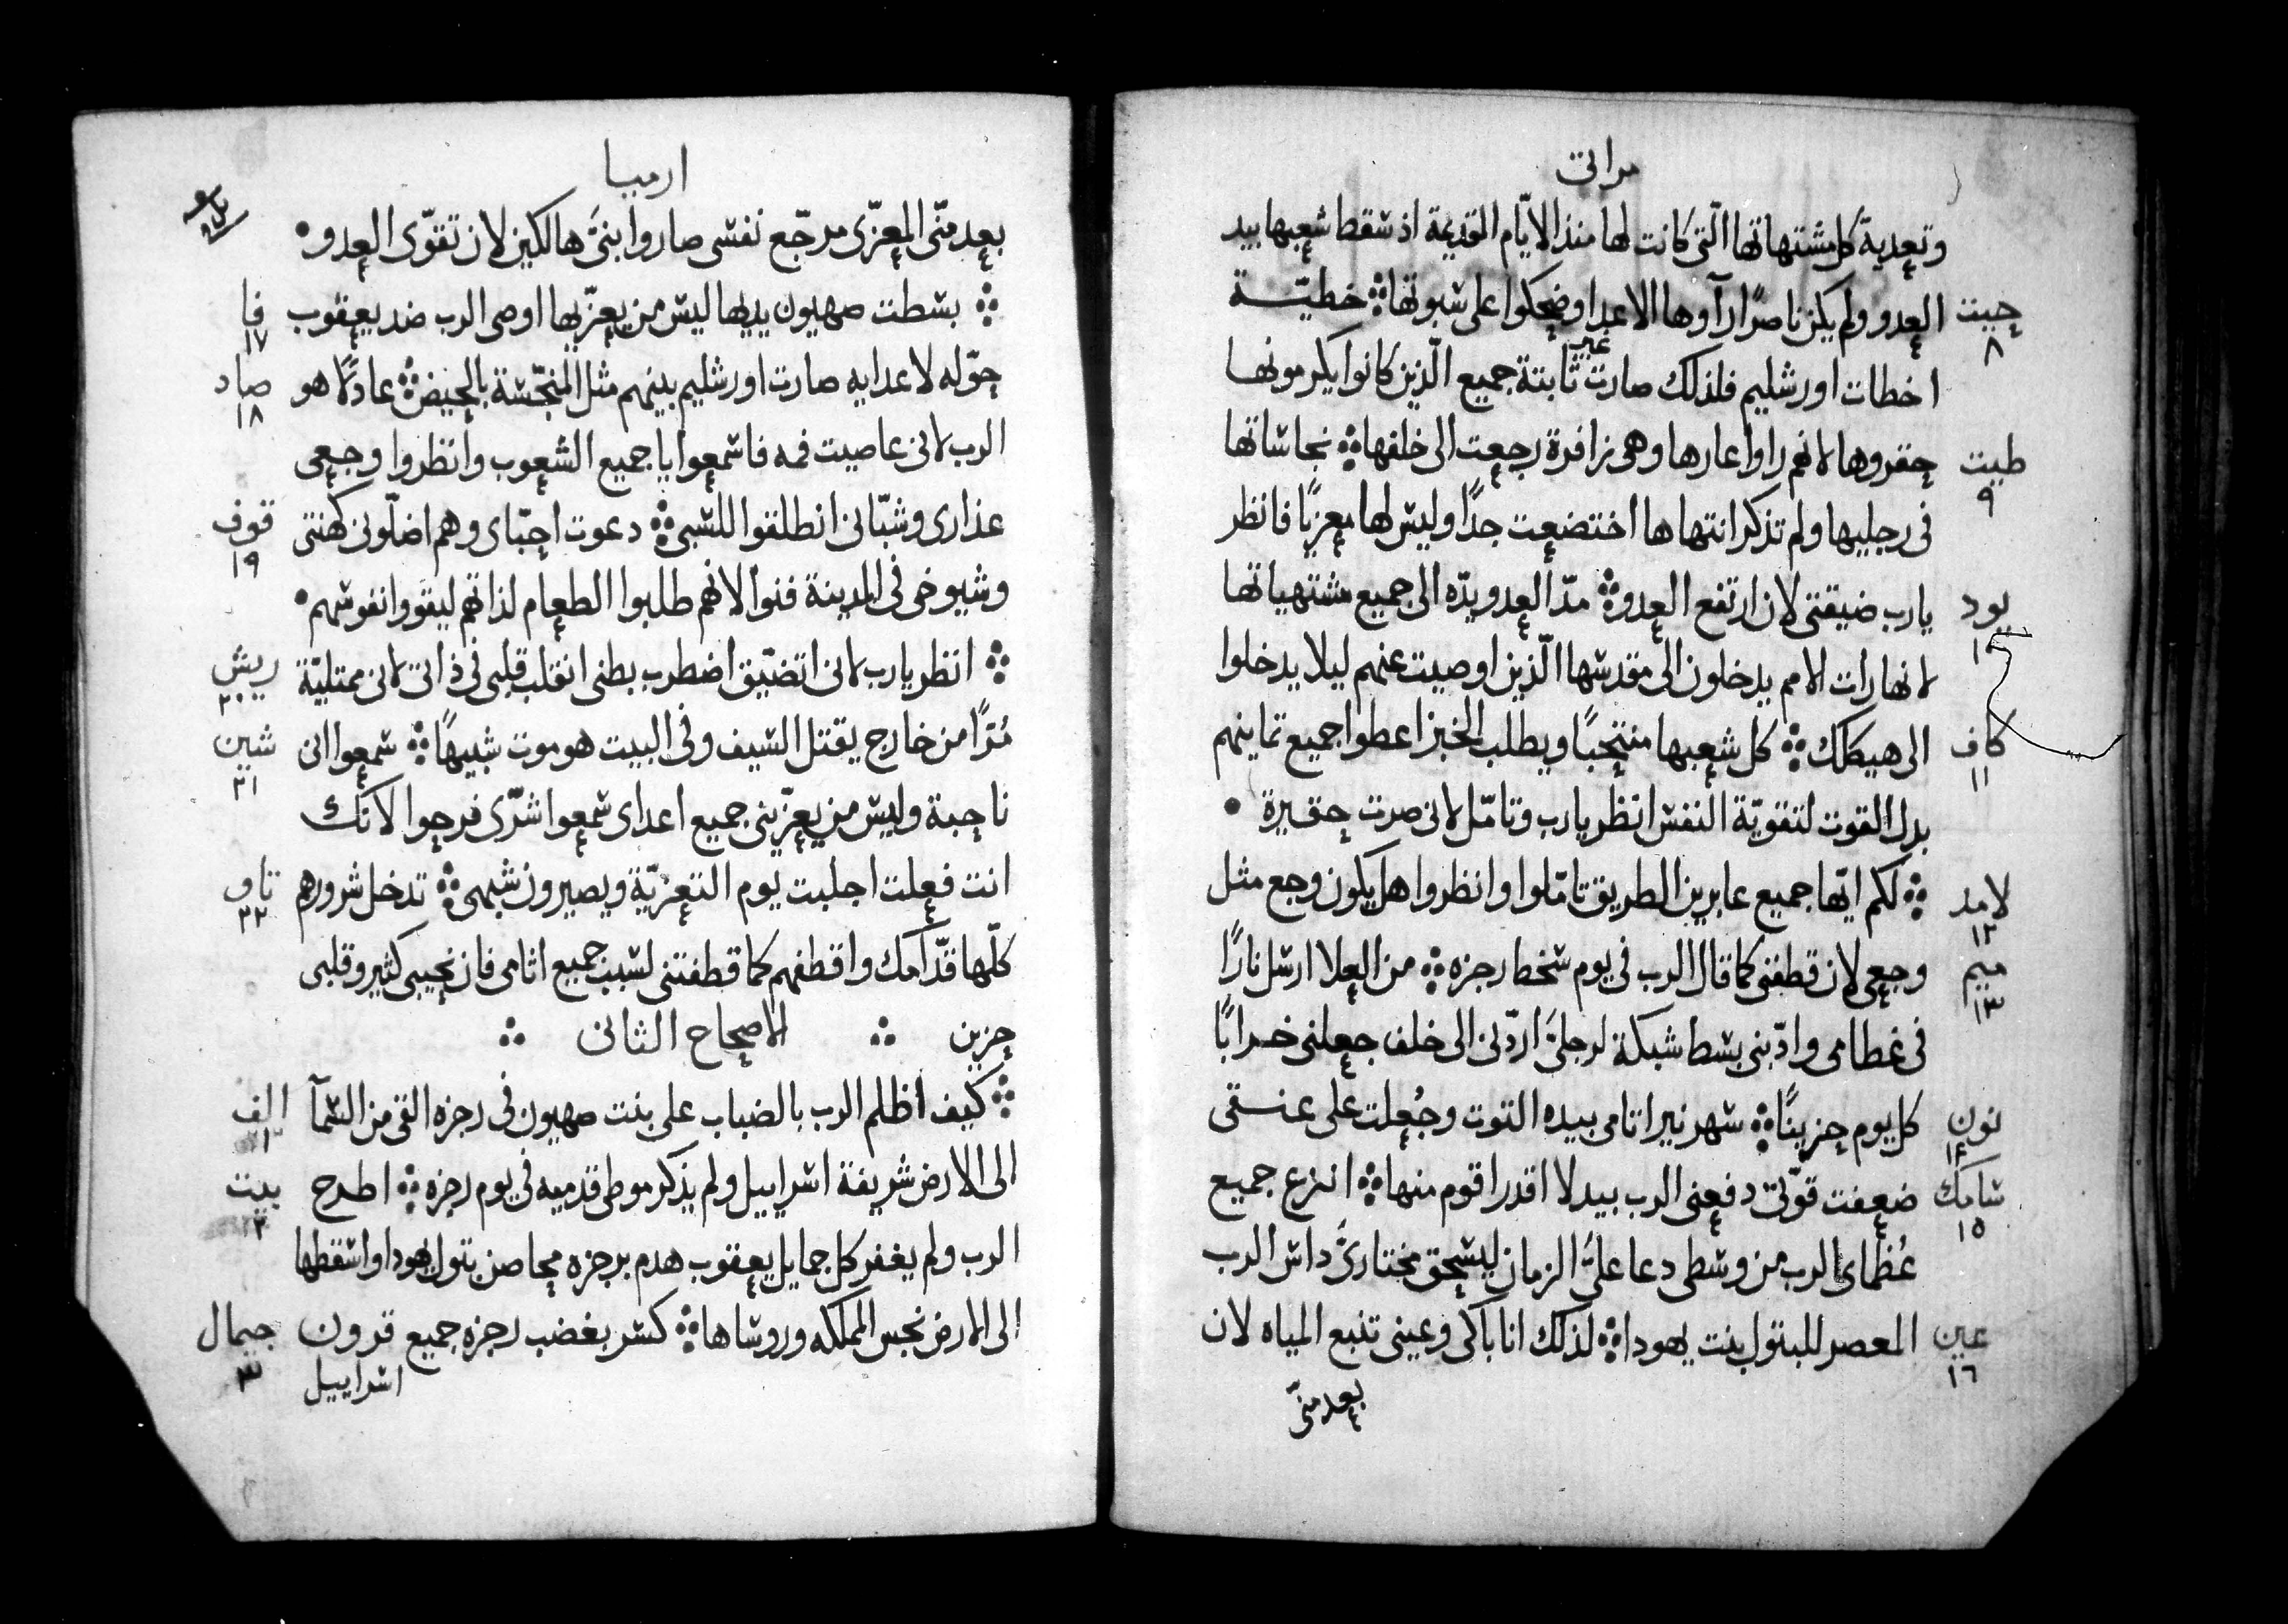 مراثى
وتعدية كل مشتهاتها الّتى كانت لها منذ الايّام القديمة اذ سقط شعبها بيد
العدو ولم يكن ناصرًا رآوها الاعدا وضحكوا على سبوتها ۞ خطيّـة
حيت ٨
اخطات اورشليم فلذلك صارت غير ثابتة جميع الّذين كانوا يكرمونها
حقروها لانهم راوا عارها وهى زافرة رجعت الى خلفها ۞ نجاساتها
طيت ٩
فى رجليها ولم تذكر انتهاها اختضعت جدًا وليس لها معزيًا فانظر
يارب ضيقتى لان ارتفع العدو ۞ مدّ العدو يدّه الى جميع مشتهياتها
يود ١٠
لانها رات الامم يدخلون الى مقدسها الّذين اوصيت عنهم ليلا يدخلوا
الى هيكلك ۞ كل شعبها منتحبًا ويطلب الخبز اعطوا جميع ثمانيهم
كاف ١١
بدل القوت لتقويّة النفس انظر يارب وتامّل لانى صرت حقيرة •
۞ لكم ايّها جميع عابرين الطريق تامّلوا وانظروا هل يكون وجع مثل
لامد ١٢
وجعى لان قطفنى كما قال الرب فى يوم سخط رجزه ۞ من العلا ارسل نارًا
ميم ١٣
فى عظامى وادّبنى بسط شبكة لرجلىَّ اردّنى الى خلف جعلنى خرابًا
كل يوم حزينًا ۞ سهر نير اثامى بيده التوت وجُعلت على عنـقى
نون ١٤
ضعفت قوّتى دفعنى الرب بيد لا اقدر اقوم منها ۞ انزع جميع
سامك ١٥
عُظماى الرب من وسطى دعا علىَّ الزمان ليسحق مختارىَّ داس الرب
المعصر للبتول بنت يهودا ۞ لذلك انا باكى وعينى تنبع المياه لان
عين ١٦
بعد منّى
ارميا
بعد منّى المعزّى مرجّع نفسى صاروا بنىَّ هالكين لان تقوّى العدو •
۞ بسطت صهيون يديها ليس من يعزّيها اوصى الرب ضد يعقوب
فا ١٧
حوّله لاعدايه صارت اورشليم بينهم مثل المنجّسة بالحيض ۞ عادلًا هو
صاد ١٨
الرب لانى عاصيت فمه فاسمعوا يا جميع الشعوب وانظروا وجعى
عذارى وشبّانى انطلقوا للسبى ۞ دعوت احبّاى وهم اضلّونى كهنتى
قوف ١٩
وشيوخى فى المدينة فنوا لانهم طلبوا الطعام لذاتهم ليقووا نفوسهم •
۞ انظر يارب لانى اتضيّق اضطرب بطنى انقلب قلبى فى ذاتى لانى ممتليّة
ريش ٢٠
مُرًّا من خارج يقتل السيف وفى البيت هو موت شبيهًا ۞ سمعوا انى
شين ٢١
ناحبة وليس من يعزّينى جميع اعداى سمعوا شرّى فرحوا لانّك
انت فعلت اجلبت يوم التعزيّة ويصيرون شبهى ۞ تدخل شرورهم
تاو ٢٢
كلّها قدّامك واقطفهم كما قطفتنى لسبب جميع اثامى فان نحيبى كثير وقلبى
حزين ۞ الاصحاح الثانى ۞
۞ كيف اظلم الرب بالضباب على بنت صهيون فى رجزه القى من السمآ
الف ١
الى الارض شريفة اسراييل ولم يذكر موطى قدميه فى يوم رجزه ۞ اطرح
بيت ٢
الرب ولم يغفر كل جمايل يعقوب هدم برجزه محاصن بتول يهودا واسقطها
الى الارض نجس المملكه وروساها ۞ كسر بغضب رجزه جميع قرون
جيمال ٣
اسراييل